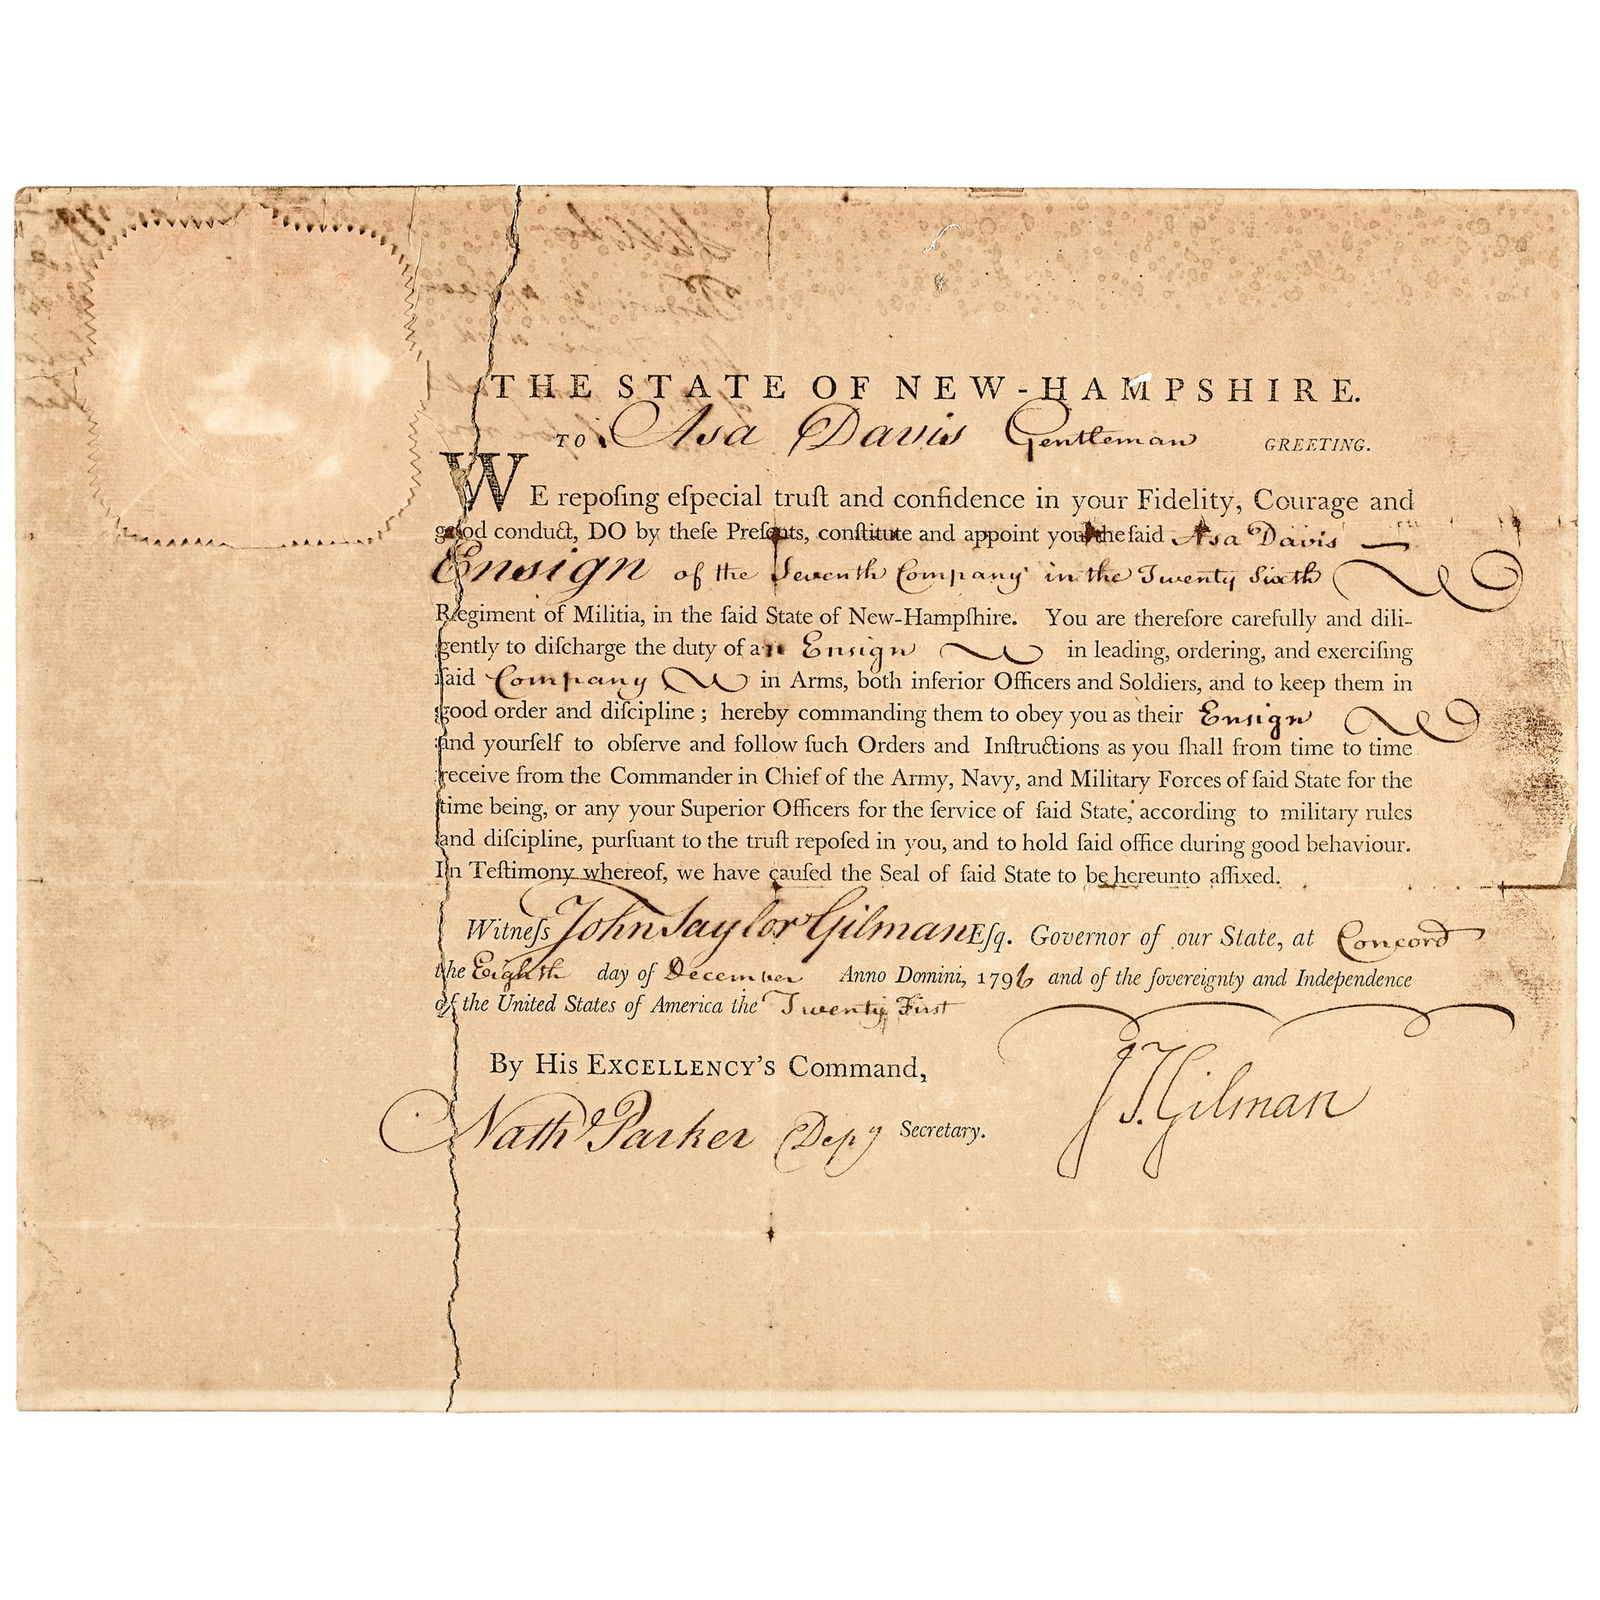 THE STATE OF NEW-HAMPSHIRE.
TO Asa Davis Gentleman GREETING.
WE repoſing eſpecial truſt and confidence in your Fidelity, Courage and
good conduct, DO by theſe Preſents, conſtitute and appoint you the ſaid Asa Davis
Ensign of the Seventh Company in the Twenty Sixth
Regiment of Militia, in the ſaid State of New-Hampſhire. You are therefore carefully and dili-
gently to diſcharge the duty of an Ensign in leading, ordering, and exerciſing
ſaid Company in Arms, both inferior Officers and Soldiers, and to keep them in
good order and diſcipline; hereby commanding them to obey you as their Ensign
and yourſelf to obſerve and follow ſuch Orders and Inſtructions as you ſhall from time to time
receive from the Commander in Chief of the Army, Navy, and Military Forces of ſaid State for the
time being, or any your Superior Officers for the ſervice of ſaid State, according to military rules
and diſcipline, purſuant to the truſt repoſed in you, and to hold ſaid office during good behaviour.
In Teſtimony whereof, we have cauſed the Seal of ſaid State to be hereunto affixed.
Witneſs John Taylor Gilman Eſq. Governor of our State, at Concord
the Eighth day of December Anno Domini, 1796 and of the ſovereignty and Independence
of the United States of America the Twenty First
By His EXCELLENCY'S Command,
J T Gilman
Nath Parker Depy Secretary.